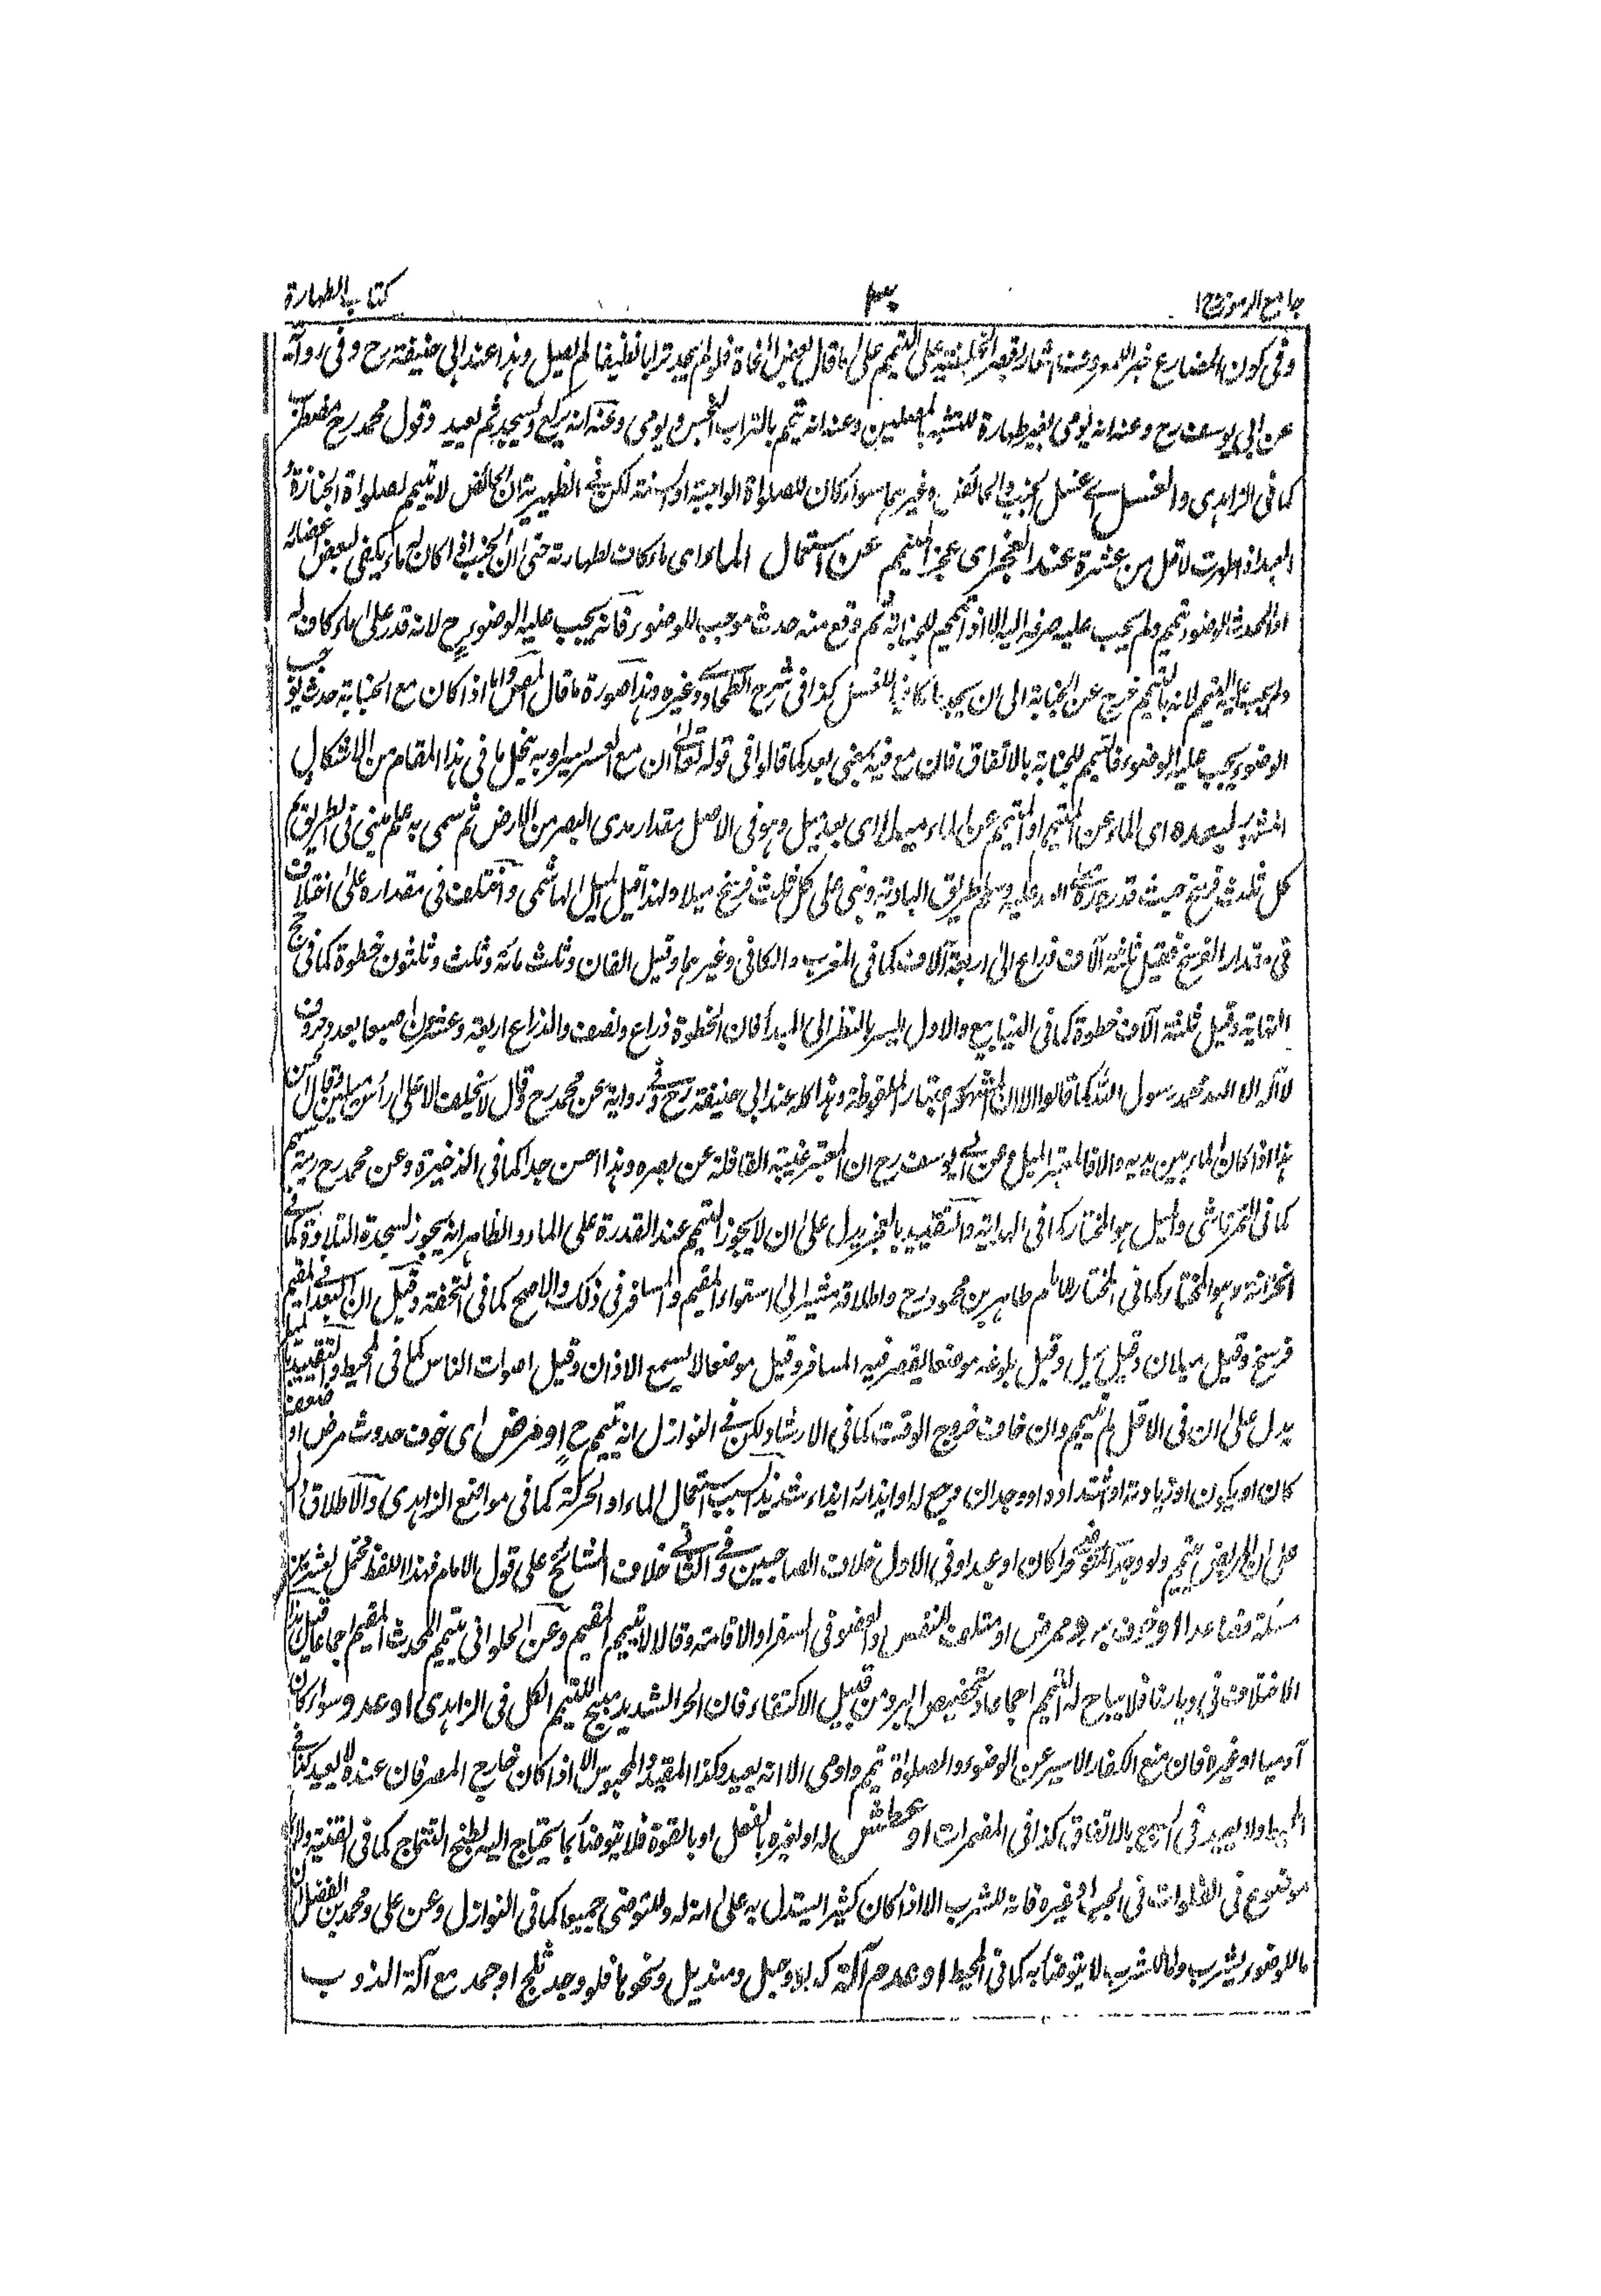 جامع الرموز ج١ ٣٠ كتاب الطهارة
وفى كون المضارع خبر اشعار بقصر الخليفية على التيمم على ما قال بعض النحاة فلو لم يجد ترابا نظيفا لم يصل وهذا عند ابى حنيفة رح وفى رواية
عن ابى يوسف رح وعنه انه يومى بغير طهارة للتشبه بالمصلين وعنه انه يتيمم بالتراب النجس ويومى وعنه انه يركع ويسجد ثم يعيد وقول محمد رح مضطرب
كما فى الزاهدى والغسل اى غسل الجنب والحائض وغيرهما سواء كان للصلواة الواجبة او السنة لكن فى الظهيرية ان الحائض لا يتيمم لصلواة الجنازة و
العيد اذا طهرت لاقل من عشرة عند العجز اى عجز المتيمم عن استعمال الماء اى ماء كاف لطهارته حتى ان الجنب اذا كان له ماء يكفى لبعض اعضائه
او المحدث للوضوء تيمم ولم يجب عليه صرفه اليه الا اذا تيمم للجنابة ثم وقع منه حدث موجب للوضوء فانه يجب عليه الوضوء ح لانه قدر على ماء كاف له
ولم يجب عليه التيمم لانه بالتيمم خرج عن الجنابة الى ان يجد ماء كافيا للغسل كذا فى شرح الطحاوى وغيره وهذا صورة ما قال المص واما اذا كان مع الجنابة حدث يوجب
الوضوء يجب عليه الوضوء فالتيمم للجنابة بالاتفاق فان مع فيه بمعنى بعد كما قالوا فى قوله تعالى ان مع العسر يسرا وبه ينحل ما فى هذا المقام من الاشكال
المشهور لبعده اى الماء عن المتيمم او المتيمم عن الماء ميلا اى بعد ميل وهو فى الاصل مقدار مدى البصر من الارض ثم سمى به علم مبنى فى الطريق ثم
كل ثلث فرسخ حيث قدر حده صلى الله عليه وسلم طريق البادية وبنى على كل ثلث فرسخ ميلا ولهذا قيل الميل الهاشمى واختلف فى مقداره على اختلاف
فى مقدار الفرسخ فقيل ثلثة آلاف ذراع الى اربعة آلاف كما فى المغرب والكافى وغيرهما وقيل الفان وثلث مائة وثلث وثلثون خطوة كما فى حج
النهاية وقيل ثلثة آلاف خطوة كما فى الينابيع والاول ايسر بالنظر الى المبدأ فان الخطوة ذراع ونصف والذراع اربعة وعشرون اصبعا بعدد حروف
لا آله الا الله محمد رسول الله كما قالوا الا ان المشهور اعتبار الملفوظة وهذا كله عند ابى حنيفة رح وفى رواية عن محمد رح قول لا يختلف الا على رأس ميلين وقال الحسن
هذا اذا كان الماء بين يديه والا فالمعتبر الميل وعن ابى يوسف رح ان المعتبر غيبة القافلة عن بصره وهذا احسن جدا كما فى الذخيرة وعن محمد رح رمية سهم
كما فى التمرتاشى والميل هو المختار كما فى الهداية والتقييد بالعجز يدل على ان لا يجوز التيمم عند القدرة على الماء والظاهر انه يجوز لسجدة التلاوة كما فى
الخزانة وهو المختار كما فى المختار للامام طاهر بن محمود رح واطلاقه مشير الى استواء المقيم والمسافر فى ذلك والاصح كما فى التحفة وقيل ان البعد فى المقيم
فرسخ وقيل ميلان وقيل ميل وقيل بلوغه موضعا يقصر فيه المسافر وقيل موضعا لا يسمع الاذان وقيل اصوات الناس كما فى المحيط والتقييد بالميل
يدل على ان فى الاقل لم يتيمم وان خاف خروج الوقت كما فى الارشاد لكن فى النوازل انه يتيمم ح او مرض اى خوف حدوث مرض او
كان او يكون او زيادته او اشتداده او وجدان وجع له او ايذائه ايذاء شديدا بسبب استعمال الماء او الحركة كما فى مواضع الزاهدى والاطلاق
على ان المريض يتيمم ولو وجد الموضى حرا كان او عبدا وفى الاول خلاف الصاحبين وفى الثانى خلاف المشائخ على قول الامام فهذا اللفظ محتمل لعشرين
مسئلة فصاعدا او خوف برد ممرض او متلف للنفس او العضو فى السفر او الاقامة وقالا لا يتيمم المقيم وعن الحلوانى يتيمم المحدث المقيم اجماعا قيل هذا
الاختلاف فى ديارنا فلا يباح له التيمم اجماعا وتخصيص البرد من قبيل الاكتفاء فان الحر الشديد مبيح للتيمم الكل فى الزاهدى او عدو سواء كان
آدميا او غيره فان منع الكفار الاسير عن الوضوء والصلواة تيمم واومى الا انه يعيد وكذا المقيد والمحبوس الا اذا كان خارج المصر فان عنده لا يعيد كما فى
ولا يعيد فى السبع بالاتفاق كذا فى المضمرات او عطش له او لغيره بالفعل او بالقوة فلا يتوضأ بما يحتاج اليه لطبخ التتماج كما فى القنية ولا
موضوع فى الفلوات فى الجب او غيره فانه للشرب الا اذا كان كثيرا ليستدل به على انه له وللتوضى جميعا كما فى النوازل وعن على ومحمد بن الفضل ان
ما للوضوء يشرب وما للشرب لا يتوضأ به كما فى المحيط او عدم آلة كدلو وحبل ومنديل ونحوها فلو وجد ثلج او جمد مع آلة الذوب